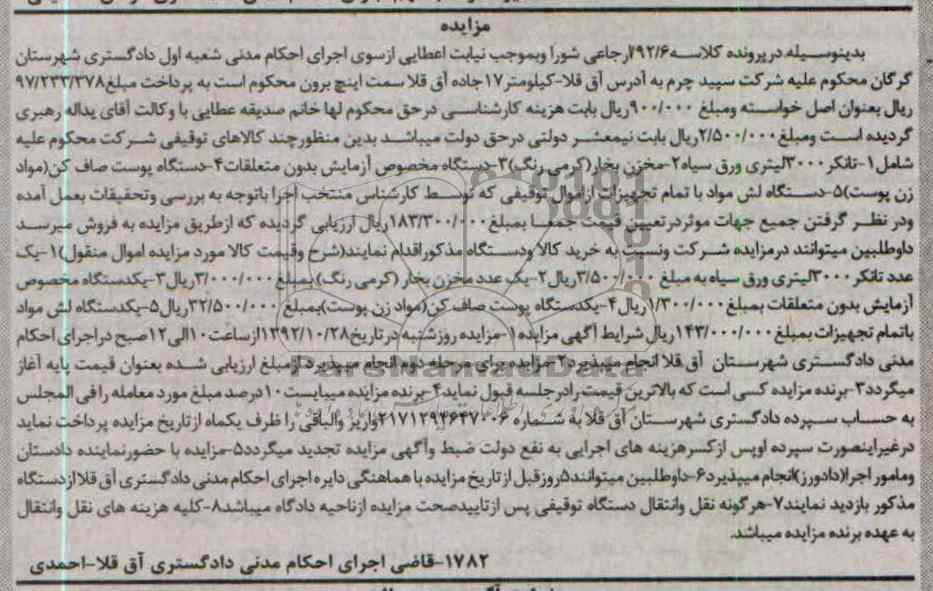 مزایده
بدینوسیله درپرونده کلاسه ۷۹۲/۶ارجاعی شورا وبموجب نیابت اعطایی ازسوی اجرای احکام مدنی شعبه اول دادگستری شهرستان
گرگان محکوم علیه شرکت سپید چرم به آدرس آق قلا-کیلومتر ۱۷جاده آق قلا سمت اینچ برون محکوم است به پرداخت مبلغ۹۷/۲۳۳/۳۷۸
ریال بعنوان اصل خواسته ومبلغ ۹۰۰/۰۰۰ریال بابت هزینه کارشناسی درحق محکوم لها خانم صدیقه عطایی با وکالت آقای یداله رهبری
گردیده است ومبلغ ۲/۵۰۰/۰۰۰ریال بابت نیمعشر دولتی درحق دولت میباشد بدین منظورچند کالاهای توقیفی شرکت محکوم علیه
شامل۱-تانکر۳۰۰۰لیتری ورق سیاه۲-مخزن بخار(کرمی رنگ)۳-دستگاه مخصوص آزمایش بدون متعلقات۴-دستگاه پوست صاف کن(مواد
زن پوست)۵-دستگاه لش مواد با تمام تجهیزات ازاموال توقیفی که توسط کارشناس منتخب اجرا باتوجه به بررسی وتحقیقات بعمل آمده
ودر نظر گرفتن جمیع جهات موثردرتعیین قیمت جمعا بمبلغ۱۸۳/۳۰۰/۰۰۰ریال ارزیابی گردیده که ازطریق مزایده به فروش میرسد
داوطلبین میتوانند درمزایده شرکت ونسبت به خرید کالا ودستگاه مذکوراقدام نمایند(شرح وقیمت کالا مورد مزایده اموال منقول)۱-یک
عدد تانکر۳۰۰۰لیتری ورق سیاه به مبلغ ۳/۵۰۰/۰۰۰ریال۲-یک عدد مخزن بخار (کرمی رنگ) بمبلغ۳/۰۰۰/۰۰۰ریال۳-یکدستگاه مخصوص
آزمایش بدون متعلقات بمبلغ۱/۳۰۰/۰۰۰ریال۴-یکدستگاه پوست صاف کن(مواد زن پوست)بمبلغ۳۲/۵۰۰/۰۰۰ریال۵-یکدستگاه لش مواد
باتمام تجهیزات بمبلغ۱۴۳/۰۰۰/۰۰۰ریال شرایط آگهی مزایده۱-مزایده روزشنبه در تاریخ۱۳۹۲/۱۰/۲۸ازساعت۱۰الی۱۲صبح دراجرای احکام
مدنی دادگستری شهرستان آق قلا انجام میپذیرد۲-مزایده برای مرحله دوم انجام میپذیرد ازمبلغ ارزیابی شده بعنوان قیمت پایه آغاز
میگردد۳-برنده مزایده کسی است که بالاترین قیمت رادرجلسه قبول نماید۴-برنده مزایده میبایست۱۰درصد مبلغ مورد معامله رافی المجلس
به حساب سپرده دادگستری شهرستان آق قلا به شماره ۲۱۷۱۲۹۴۶۴۷۰۰۶واریز والباقی را ظرف یکماه ازتاریخ مزایده پرداخت نماید
درغیراینصورت سپرده اوپس ازکسرهزینه های اجرایی به نفع دولت ضبط وآگهی مزایده تجدید میگردد۵-مزایده با حضورنماینده دادستان
ومامور اجرا(دادورز)انجام میپذیرد۶-داوطلبین میتوانند۵روزقبل ازتاریخ مزایده با هماهنگی دایره اجرای احکام مدنی دادگستری آق قلاازدستگاه
مذکور بازدید نمایند۷-هرگونه نقل وانتقال دستگاه توقیفی پس ازتاییدصحت مزایده ازناحیه دادگاه میباشد۸-کلیه هزینه های نقل وانتقال
به عهده برنده مزایده میباشد.
۱۷۸۲-قاضی اجرای احکام مدنی دادگستری آق قلا-احمدی
ParsNamadData